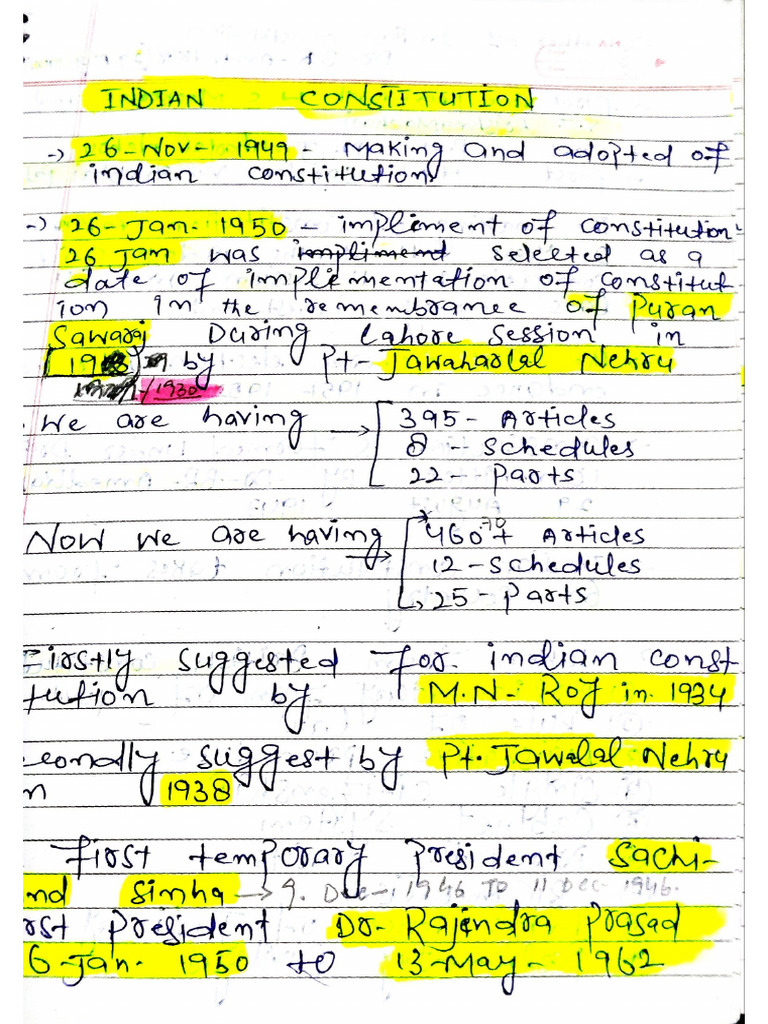 INDIAN CONSTITUTION
-> 26-Nov-1949 - Making and adopted of
indian constitution
-> 26-Jan-1950 - impliment of constitution
26 Jan was impliment selected as a
date of implementation of constitut-
ion in the remembrance of Puran
Sawaraj During Lahore Session in
by Pt- Jawaharlal Nehru
1930
We are having -> 395 - Articles
8 - Schedules
22 - Parts
Now we are having -> 460+ 70 Articles
12 - Schedules
25 - Parts
Firstly suggested for indian const
tution by M.N- Roy in 1934
condly suggest by Pt. Jawalal Nehru
n 1938
First temporary president Sachi-
nd Sinha -> 9. Dec-1946 To 11 Dec 1946.
rst president Dr- Rajendra Prasad
6-Jan- 1950 to 13-May-1962